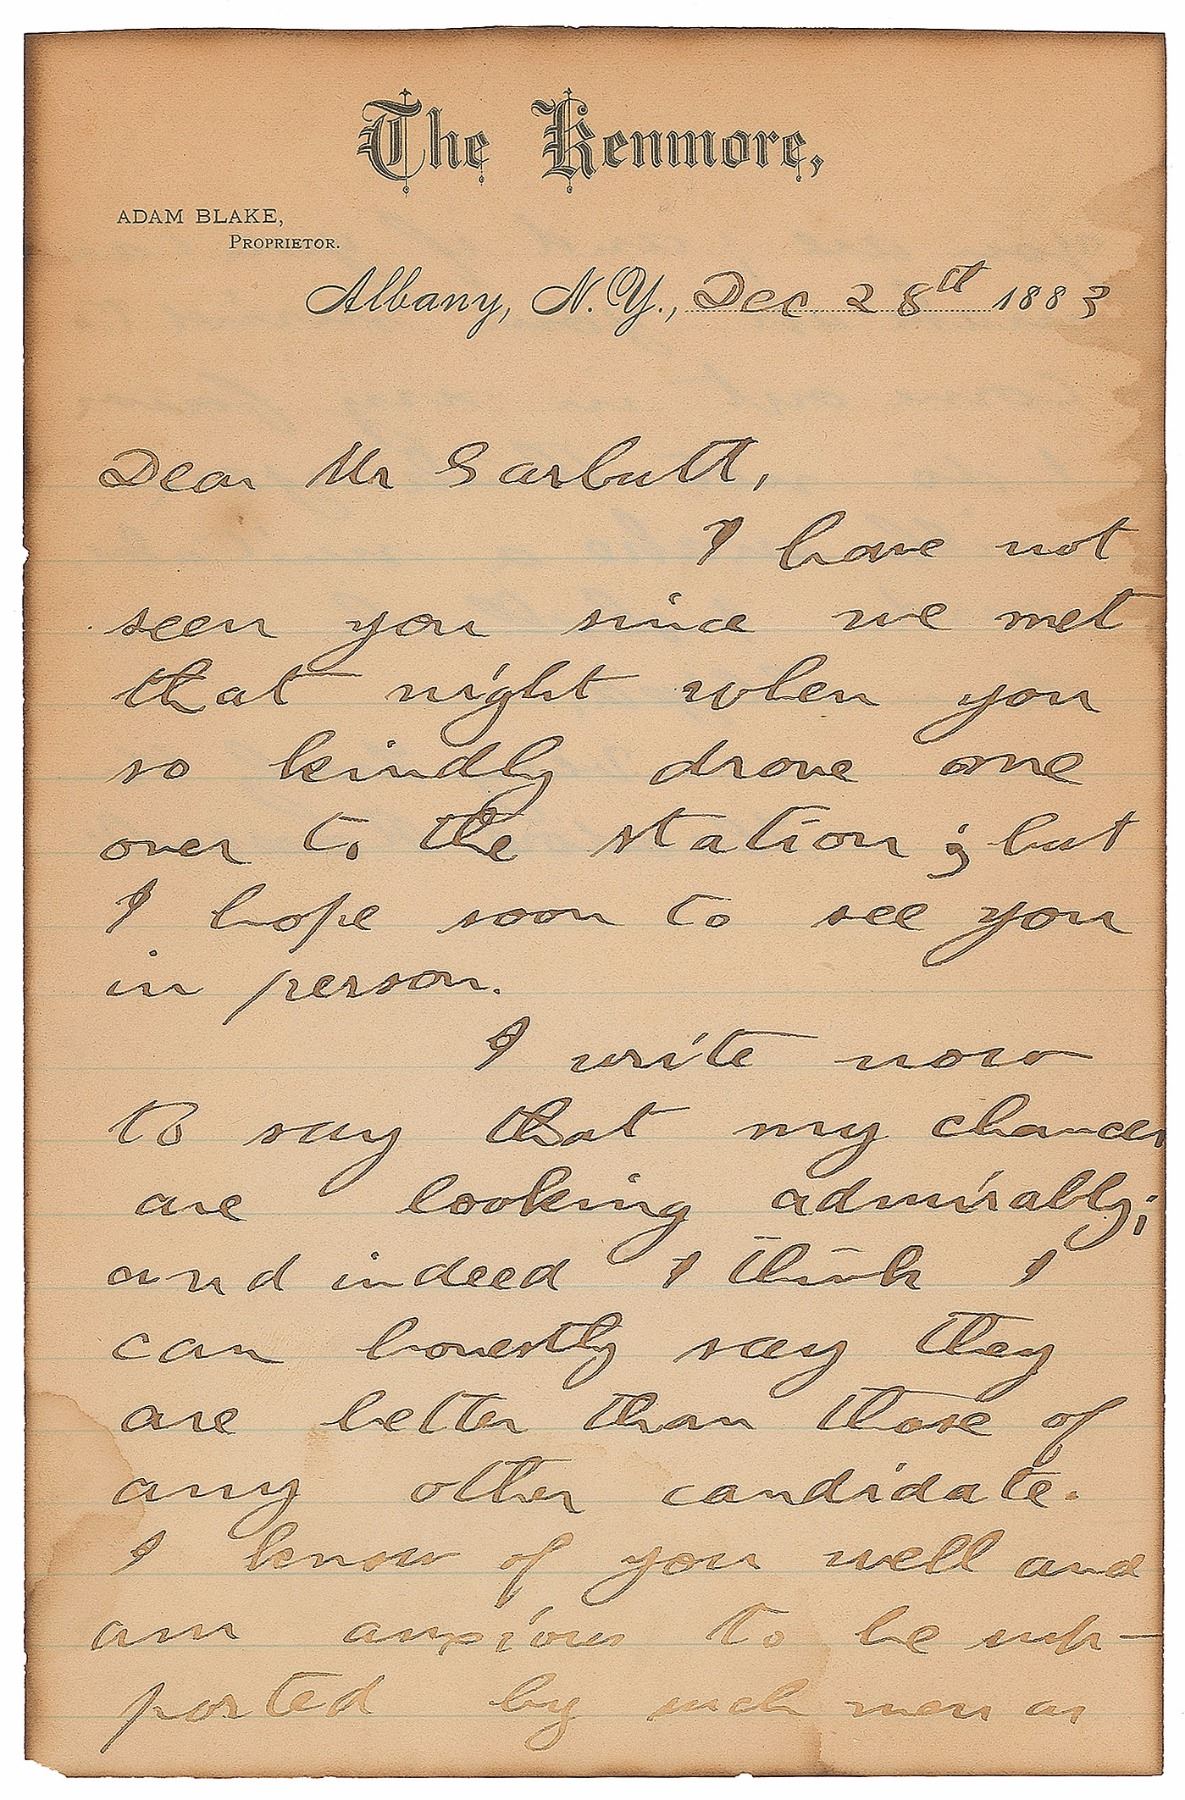 The Kenmore,
ADAM BLAKE,
PROPRIETOR.
Albany, N.Y., Dec 28th 1883
Dear Mr Garbutt,
I have not
seen you since we met
that night when you
so kindly drove me
over to the station; but
I hope soon to see you
in person.
I write now
to say that my chances
are looking admirably;
and indeed I think I
can honestly say they
are better than those of
any other candidate.
I know of you well and
am anxious to be sup-
ported by such men as